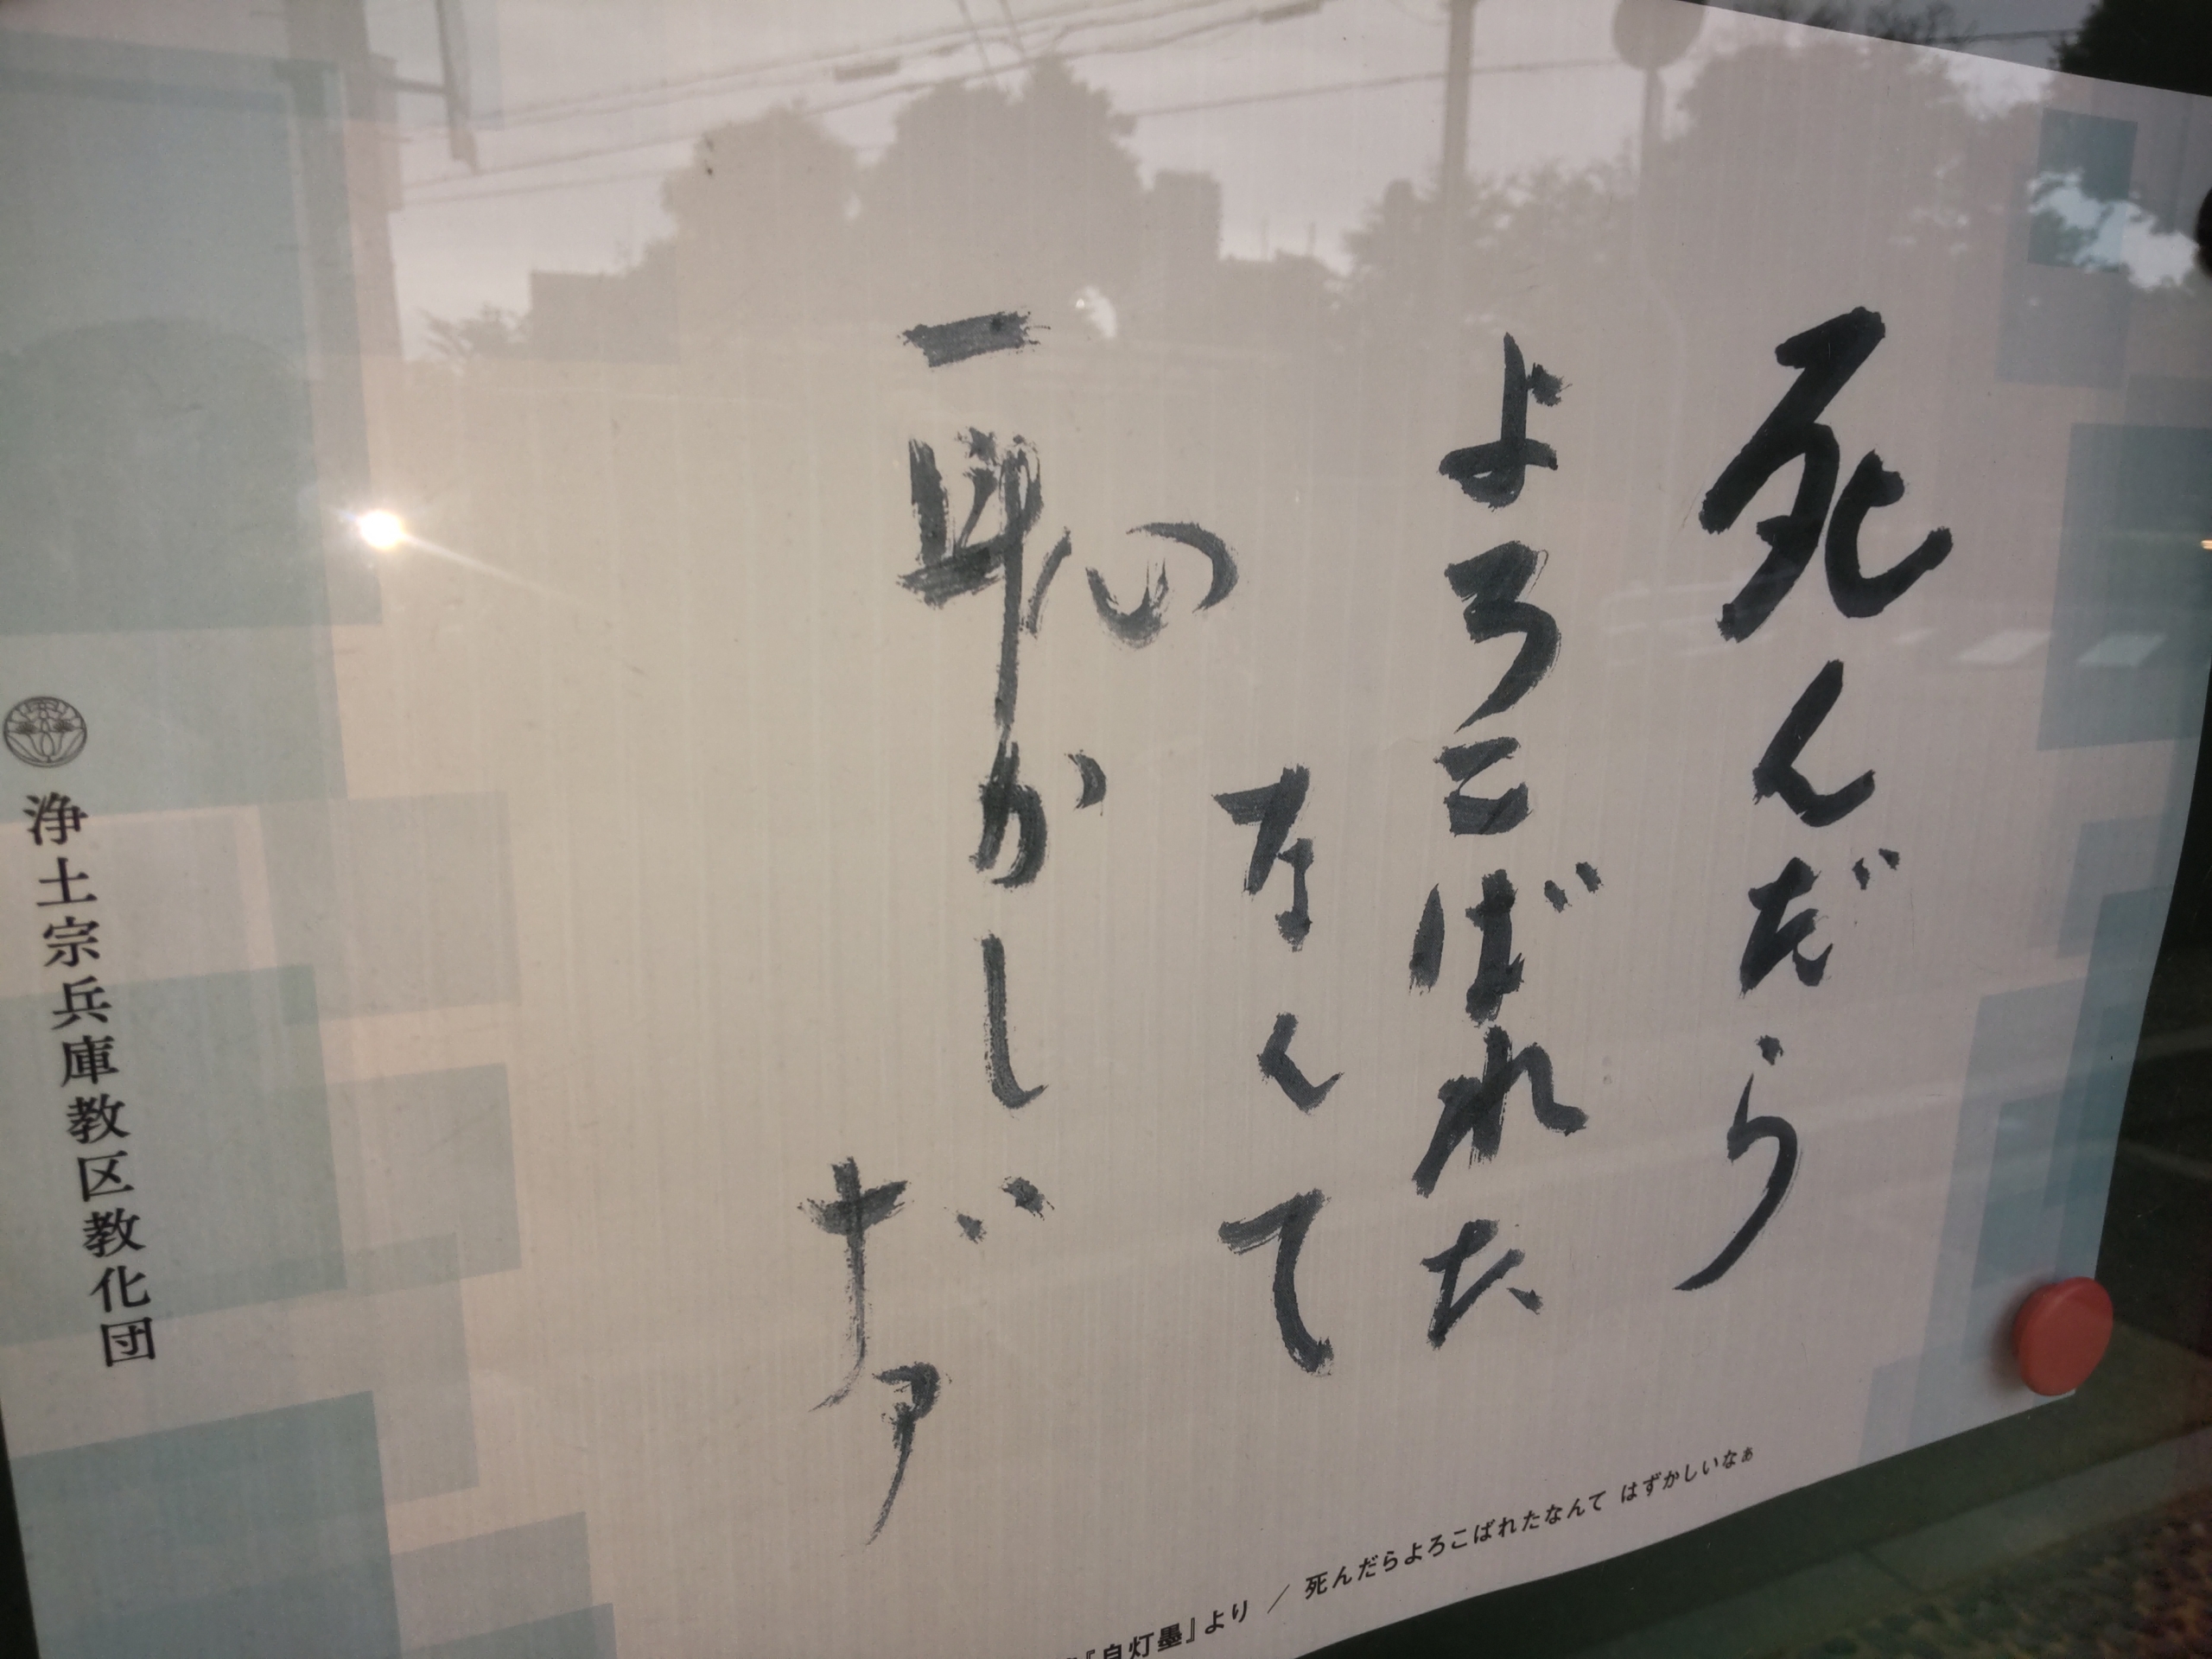 死んだら
よろこばれた
なんて
恥かしい
ナァ
『自灯墨』より ／ 死んだらよろこばれたなんて はずかしいなぁ
浄土宗兵庫教区教化団